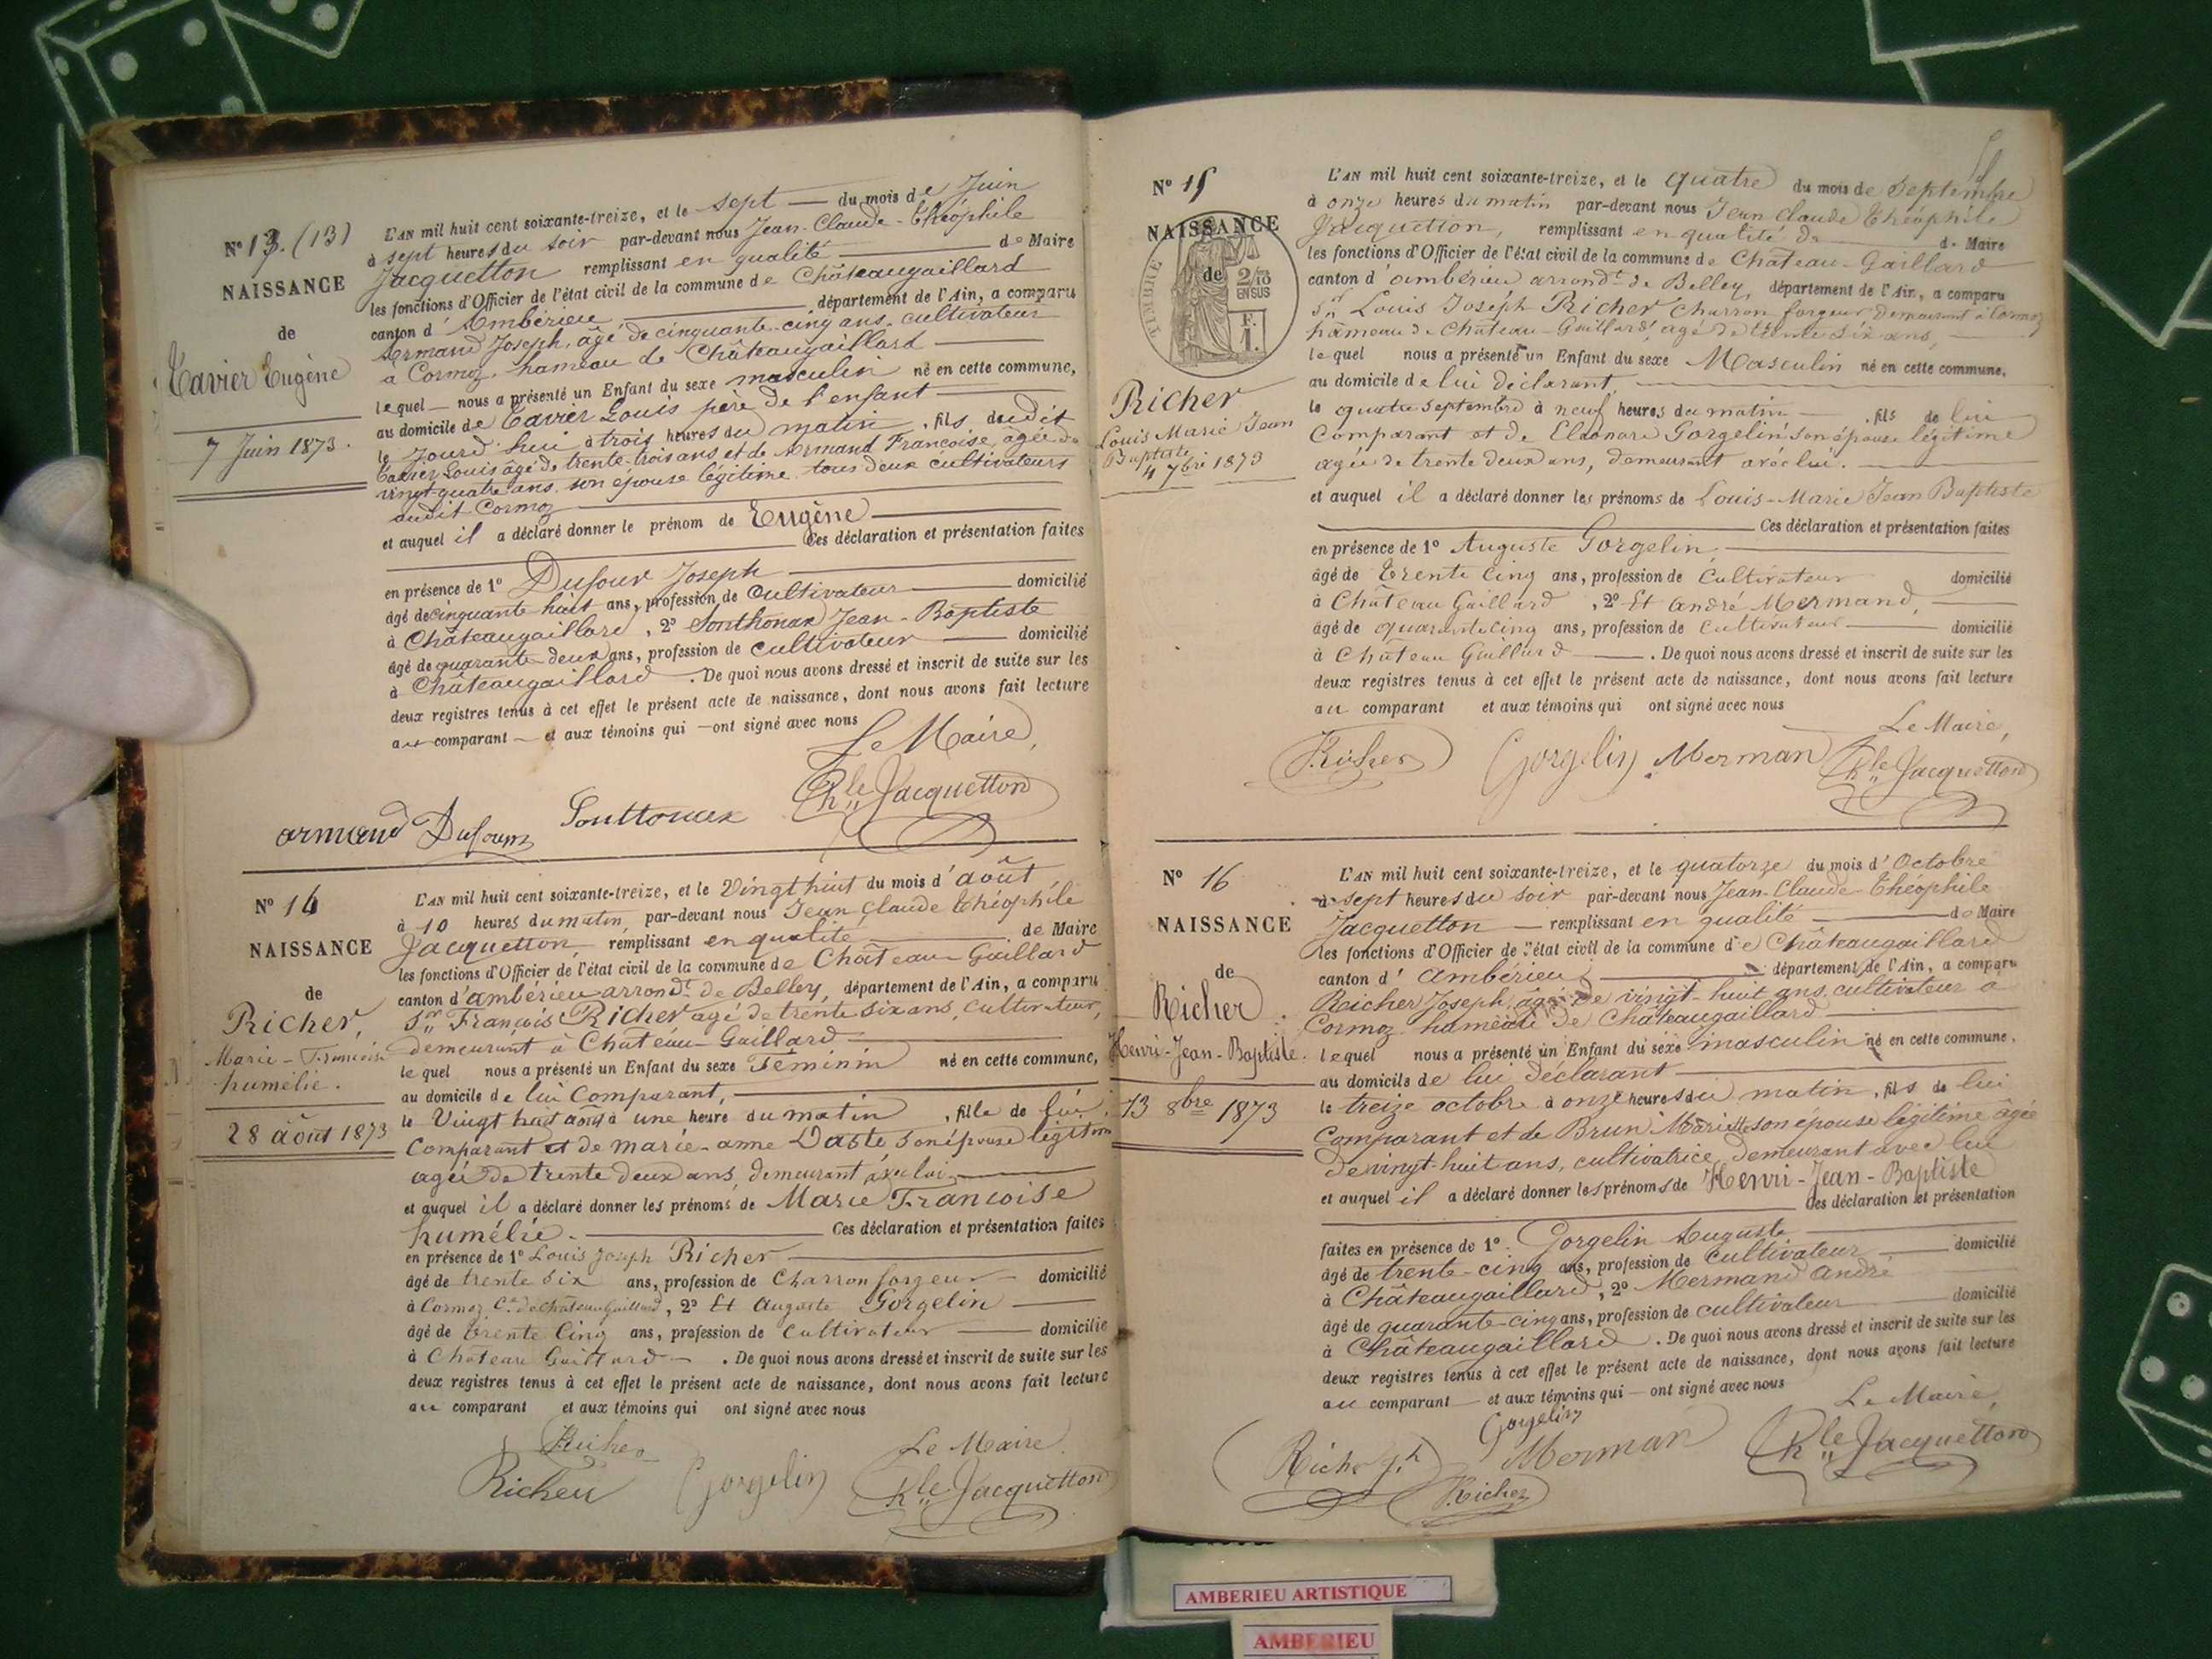 Nº 13. (13)
NAISSANCE
de
Tavier Eugène
7 Juin 1873.
L'AN mil huit cent soixante-treize, et le sept — du mois de Juin
à sept heures du soir par-devant nous Jean-Claude-Théophile
Jacquetton remplissant en qualité — de Maire
les fonctions d'Officier de l'état civil de la commune de Châteaugaillard
canton d'Ambérieu — département de l'Ain, a comparu
Armand Joseph, âgé de cinquante-cinq ans, cultivateur
à Cormoz, hameau de Châteaugaillard —
lequel — nous a présenté un Enfant du sexe masculin né en cette commune,
au domicile de Tavier Louis père de l'enfant —
le jourd'hui à trois heures du matin, fils dudit
Tavier Louis âgé de trente-trois ans et de Armand Françoise, agée de
vingt-quatre ans son épouse légitime tous deux cultivateurs
audit Cormoz —
et auquel il a déclaré donner le prénom de Eugène —
Ces déclaration et présentation faites
en présence de 1º Dufour Joseph —
âgé de cinquante huit ans, profession de cultivateur — domicilié
à Châteaugaillard, 2º Sonthonax Jean-Baptiste
âgé de quarante-deux ans, profession de cultivateur — domicilié
à Châteaugaillard. De quoi nous avons dressé et inscrit de suite sur les
deux registres tenus à cet effet le présent acte de naissance, dont nous avons fait lecture
au comparant — et aux témoins qui — ont signé avec nous
Le Maire,
armand Dufour Sonttonax Jacquetton
Nº 14
NAISSANCE
de
Richer,
Marie-Francoise
humélie.
28 août 1873
L'AN mil huit cent soixante-treize, et le Vingt huit du mois d'août
à 10 heures du matin, par-devant nous Jean Claude théophile
Jacquetton, remplissant en qualité — de Maire
les fonctions d'Officier de l'état civil de la commune de Château-Gaillard
canton d'ambérieu arrondt de Belley, département de l'Ain, a comparu
Sr François Richer agé de trente six ans, cultivateur,
demeurant à Château-Gaillard —
lequel nous a présenté un Enfant du sexe Féminin né en cette commune,
au domicile de lui Comparant, —
le Vingt huit août à une heure du matin, fille de lui
Comparant et de marie-anne Daste son épouse légitime
agée de trente deux ans, demeurant avec lui —
et auquel il a déclaré donner les prénoms de Marie Francoise
humélie. — Ces déclaration et présentation faites
en présence de 1º Louis Joseph Richer —
âgé de trente six ans, profession de Charron forgeur — domicilié
à Cormoz Cne de Château Gaillard, 2º Et Auguste Gorgelin —
âgé de trente cinq ans, profession de Cultivateur — domicilié
à Château Gaillard — . De quoi nous avons dressé et inscrit de suite sur les
deux registres tenus à cet effet le présent acte de naissance, dont nous avons fait lecture
au comparant et aux témoins qui ont signé avec nous
Richer Le Maire
Richer Gorgelin Jacquetton
Nº 15
NAISSANCE
de
TIMBRE
2/10
EN SUS
F.
1.
Richer
Louis Marie Jean
Baptiste
4 7bre 1873
L'AN mil huit cent soixante-treize, et le quatre du mois de Septembre
à onze heures du matin par-devant nous Jean Claude Théophile
Jacquetton, remplissant en qualité de — de Maire
les fonctions d'Officier de l'état civil de la commune de Château-Gaillard
canton d'ambérieu arrondt de Belley, département de l'Ain, a comparu
Sr Louis Joseph Richer Charron forgeur demeurant à Cormoz
hameau de Château-Gaillard, agé de trente six ans, —
lequel nous a présenté un Enfant du sexe Masculin né en cette commune,
au domicile de lui déclarant, —
le quatre septembre à neuf heures du matin — , fils de lui
Comparant et de Eléonore Gorgelin son épouse légitime
agée de trente deux ans, demeurant avec lui. —
et auquel il a déclaré donner les prénoms de Louis-Marie Jean Baptiste
— Ces déclaration et présentation faites
en présence de 1º Auguste Gorgelin, —
âgé de trente cinq ans, profession de Cultivateur domicilié
à Château Gaillard, 2º Et André Mermand, —
âgé de quarante cinq ans, profession de Cultivateur — domicilié
à Château Gaillard — . De quoi nous avons dressé et inscrit de suite sur les
deux registres tenus à cet effet le présent acte de naissance, dont nous avons fait lecture
au comparant et aux témoins qui ont signé avec nous
Le Maire,
Richer Gorgelin Merman Jacquetton
Nº 16
NAISSANCE
de
Richer
Henri-Jean-Baptiste.
13 8bre 1873
L'AN mil huit cent soixante-treize, et le quatorze du mois d'Octobre
à sept heures du soir par-devant nous Jean-Claude-Théophile
Jacquetton — remplissant en qualité — de Maire
les fonctions d'Officier de l'état civil de la commune de Châteaugaillard
canton d'Ambérieu — département de l'Ain, a comparu
Richer Joseph, âgé de vingt-huit ans, cultivateur à
Cormoz hameau de Châteaugaillard —
lequel nous a présenté un Enfant du sexe masculin né en cette commune,
au domicile de lui déclarant —
le treize octobre à onze heures du matin, fils de lui
Comparant et de Brun Marie son épouse légitime âgée
de vingt-huit ans, cultivatrice, demeurant avec lui
et auquel il a déclaré donner les prénoms de Henri-Jean-Baptiste
— Ces déclaration et présentation
faites en présence de 1º Gorgelin Auguste —
âgé de trente-cinq ans, profession de cultivateur — domicilié
à Châteaugaillard, 2º Mermand André
âgé de quarante-cinq ans, profession de cultivateur — domicilié
à Châteaugaillard. De quoi nous avons dressé et inscrit de suite sur les
deux registres tenus à cet effet le présent acte de naissance, dont nous avons fait lecture
au comparant — et aux témoins qui — ont signé avec nous
Le Maire,
Gorgelin
Richer Merman Jacquetton
Richer
AMBERIEU ARTISTIQUE
AMBERIEU